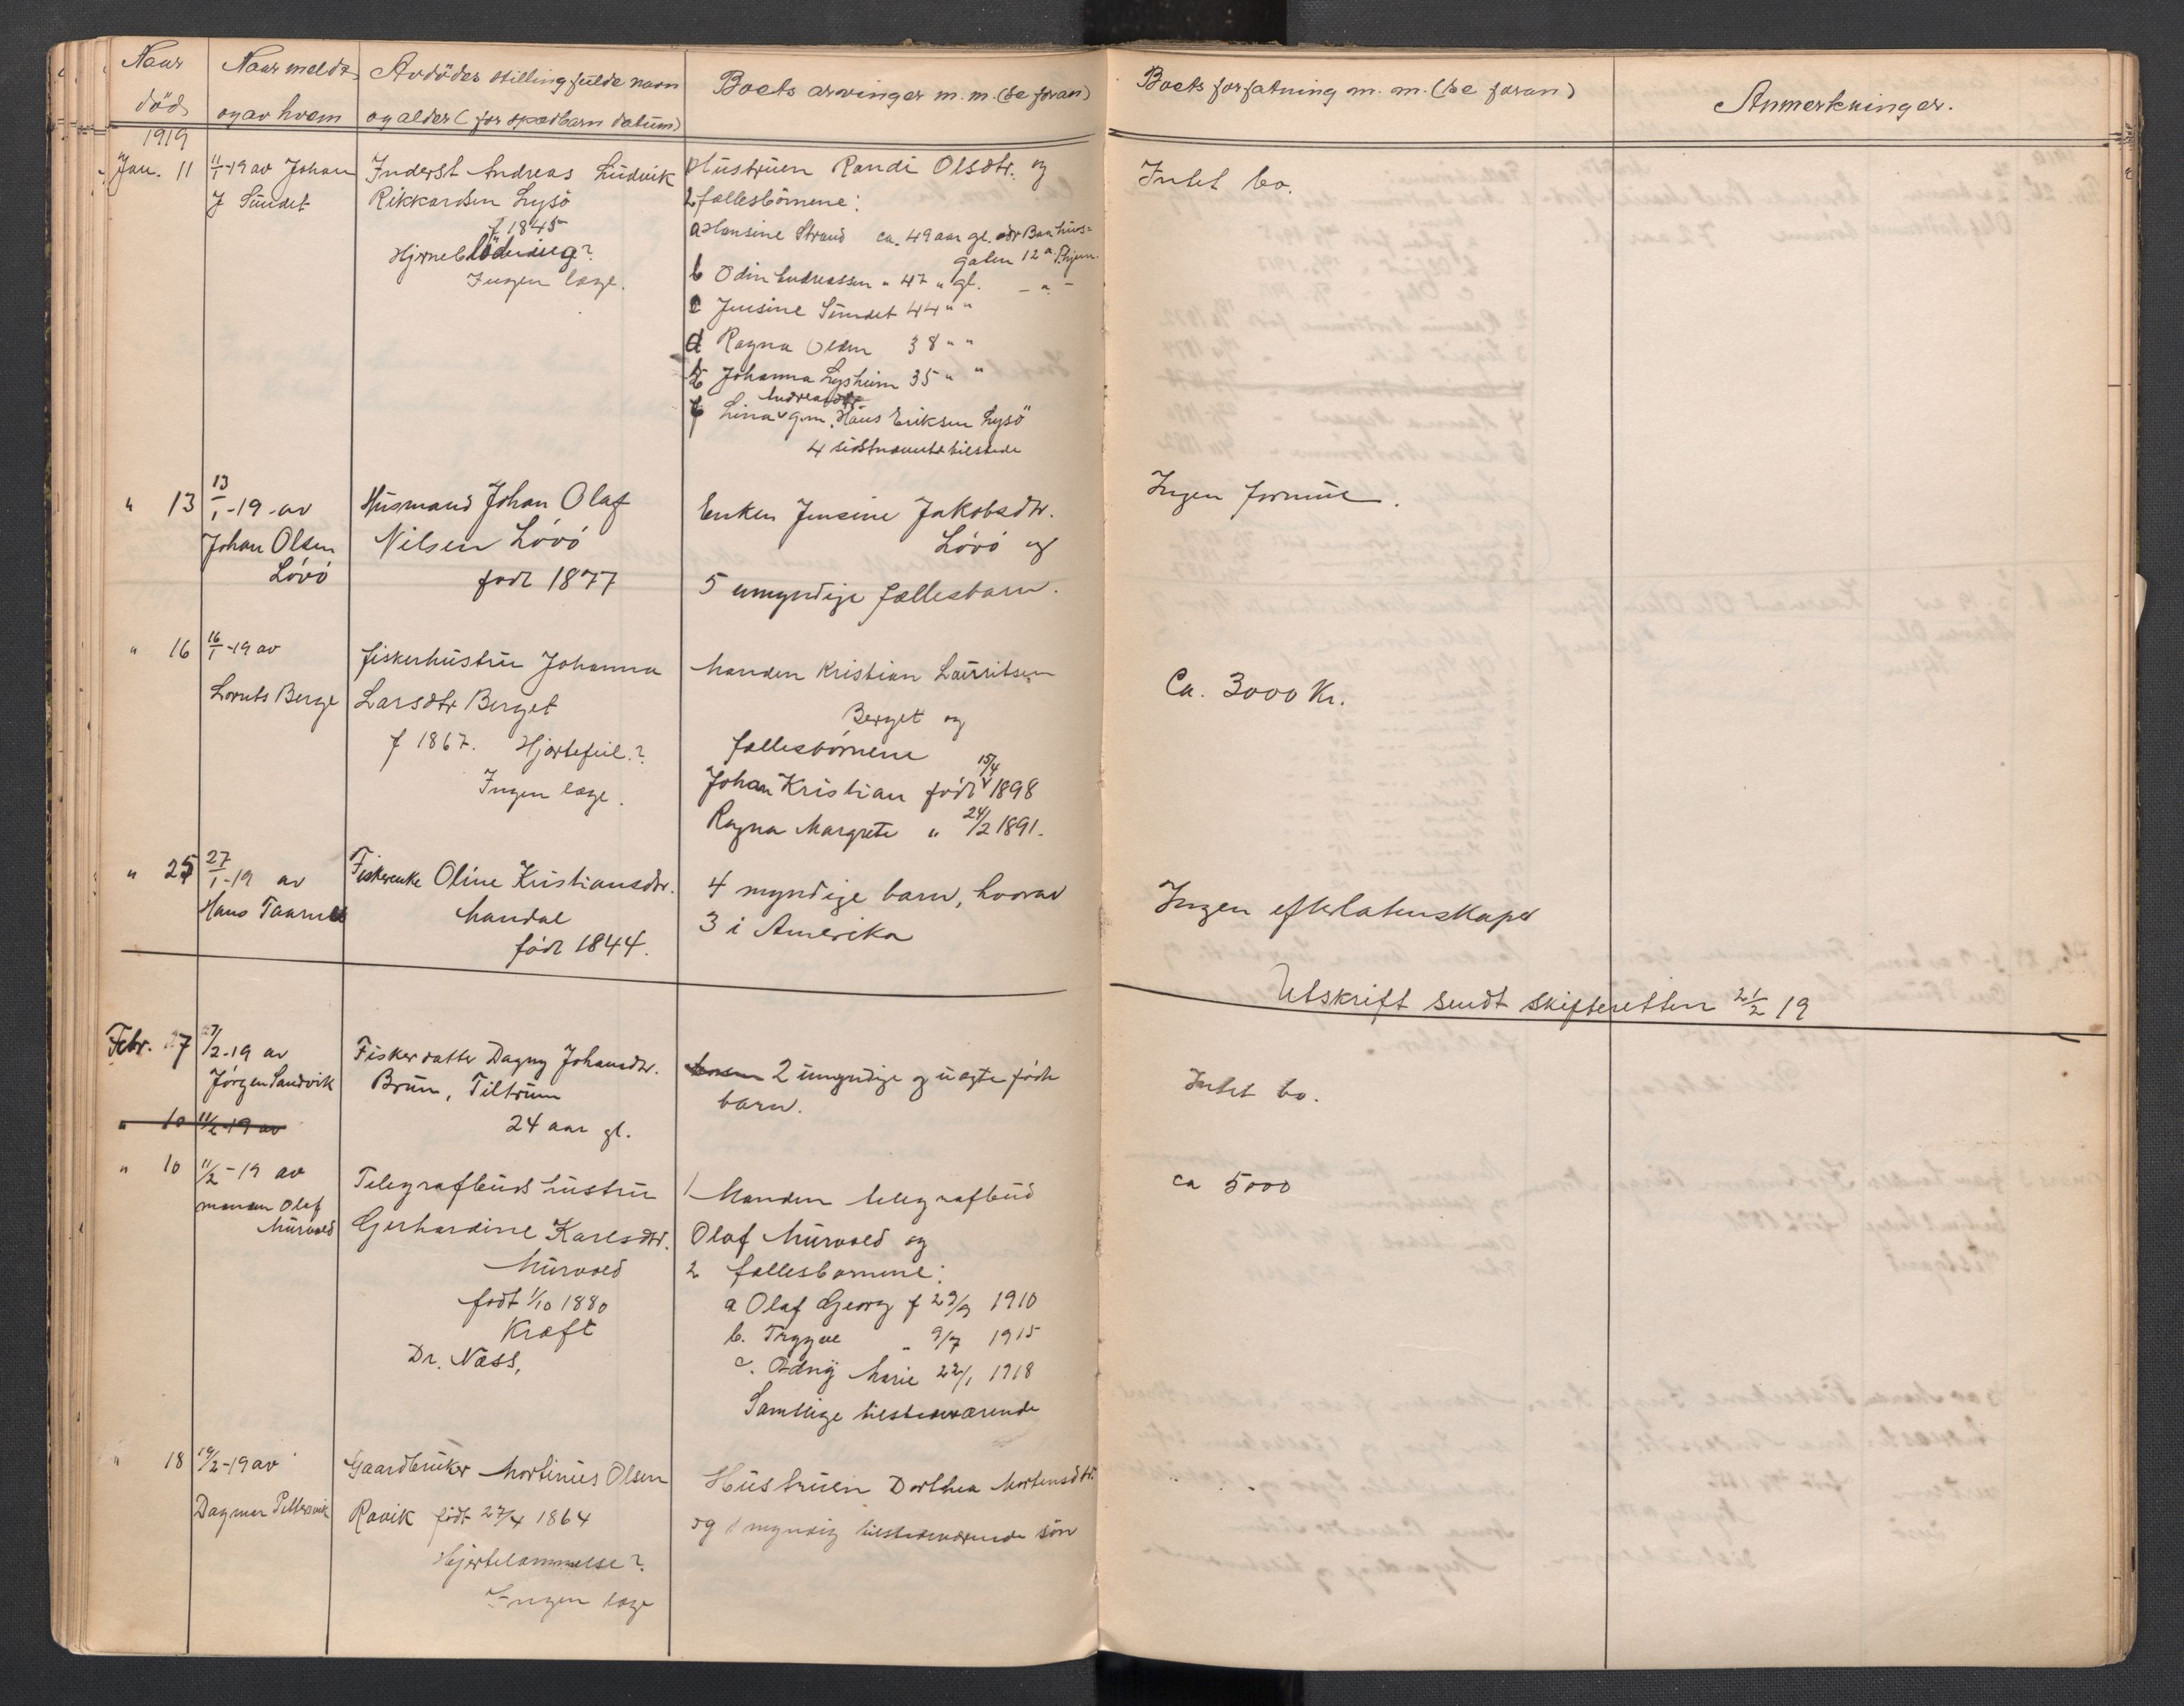 Naar
död
Naar meldt
og av hvem
Avdödes stilling fulde navn
og alder (for spædbarn datum)
Boets arvinger m. m. (se foran)
Boets forfatning m. m. (se foran)
Anmerkninger.
1919
Jan. 11
11/1-19 av Johan
J Sundet
Inderst Andreas Ludvik
Rikkardsen Lysö
f 1845
Hjerneblödning?
Ingen læge.
Hustruen Randi Olsdtr. og
2 fællesbörnene:
a Hansine Strand ca. 49 aar gl. adr Baahus=
gaten 12a Thjem.
b Odin Andreassen " 47 " gl. - " -
c Jensine Sundet 44 " "
d Ragna Olsen 38 " "
e Johanna Lysheim 35 " "
Andreasdtr
f Lina g.m. Hans Eriksen Lysö
4 sidstnævnte tilstede
Intet bo.
" 13
13/1-19 av
Johan Olsen
Lövö
Husmand Johan Olaf
Nilsen Lövö
född 1877
Enken Jensine Jakobsdtr.
Lövö og
5 umyndige fællesbarn.
Ingen formue.
" 16
16/1-19 av
Lorents Berge
fiskerhustru Johanna
Larsdtr Berget
f 1867. Hjertefeil.?
Ingen læge.
Manden Kristian Lauritsen
Berget og
fællesbörnene
Johan Kristian född 15/4 1898
Ragna Margrete " 24/2 1891.
Ca. 3000 Kr.
" 25
27/1-19 av
Hans Taarnes
Fiskerenke Oline Kristiansdtr.
Mandal
född 1844.
4 myndige barn, hvorav
3 i Amerika
Ingen efterlatenskaper
Utskrift sendt skifteretten 21/2 19
Febr. 7
7/2-19 av
Jörgen Sandvik
Fiskerdatter Dagny Johansdtr.
Brun, Tiltrum
24 aar gl.
2 umyndige og uægte födte
barn.
Intet bo.
" 10 11/2-19 av
" 10
11/2-19 av
manden Olaf
Murvold
Telegrafbuds hustru
Gerhardine Karlsdtr.
Murvold
född 1/10 1880
Kræft
Dr. Næss,
1 Manden telegrafbud
Olaf Murvold og
2 fællesbörnene:
a Olaf Georg f 29/9 1910
b. Trygve " 9/7 1915
c. Odny Marie 22/1 1918
Samtlige tilstedeværende
ca 5000
" 18
19/2-19 av
Dagmar Pettersvik
Gaardbruker Mortinus Olsen
Ravik född 27/4 1864
Hjertelammelse?
Ingen læge
Hustruen Dorthea Mortensdtr.
og 1 myndig tilstedeværende sön